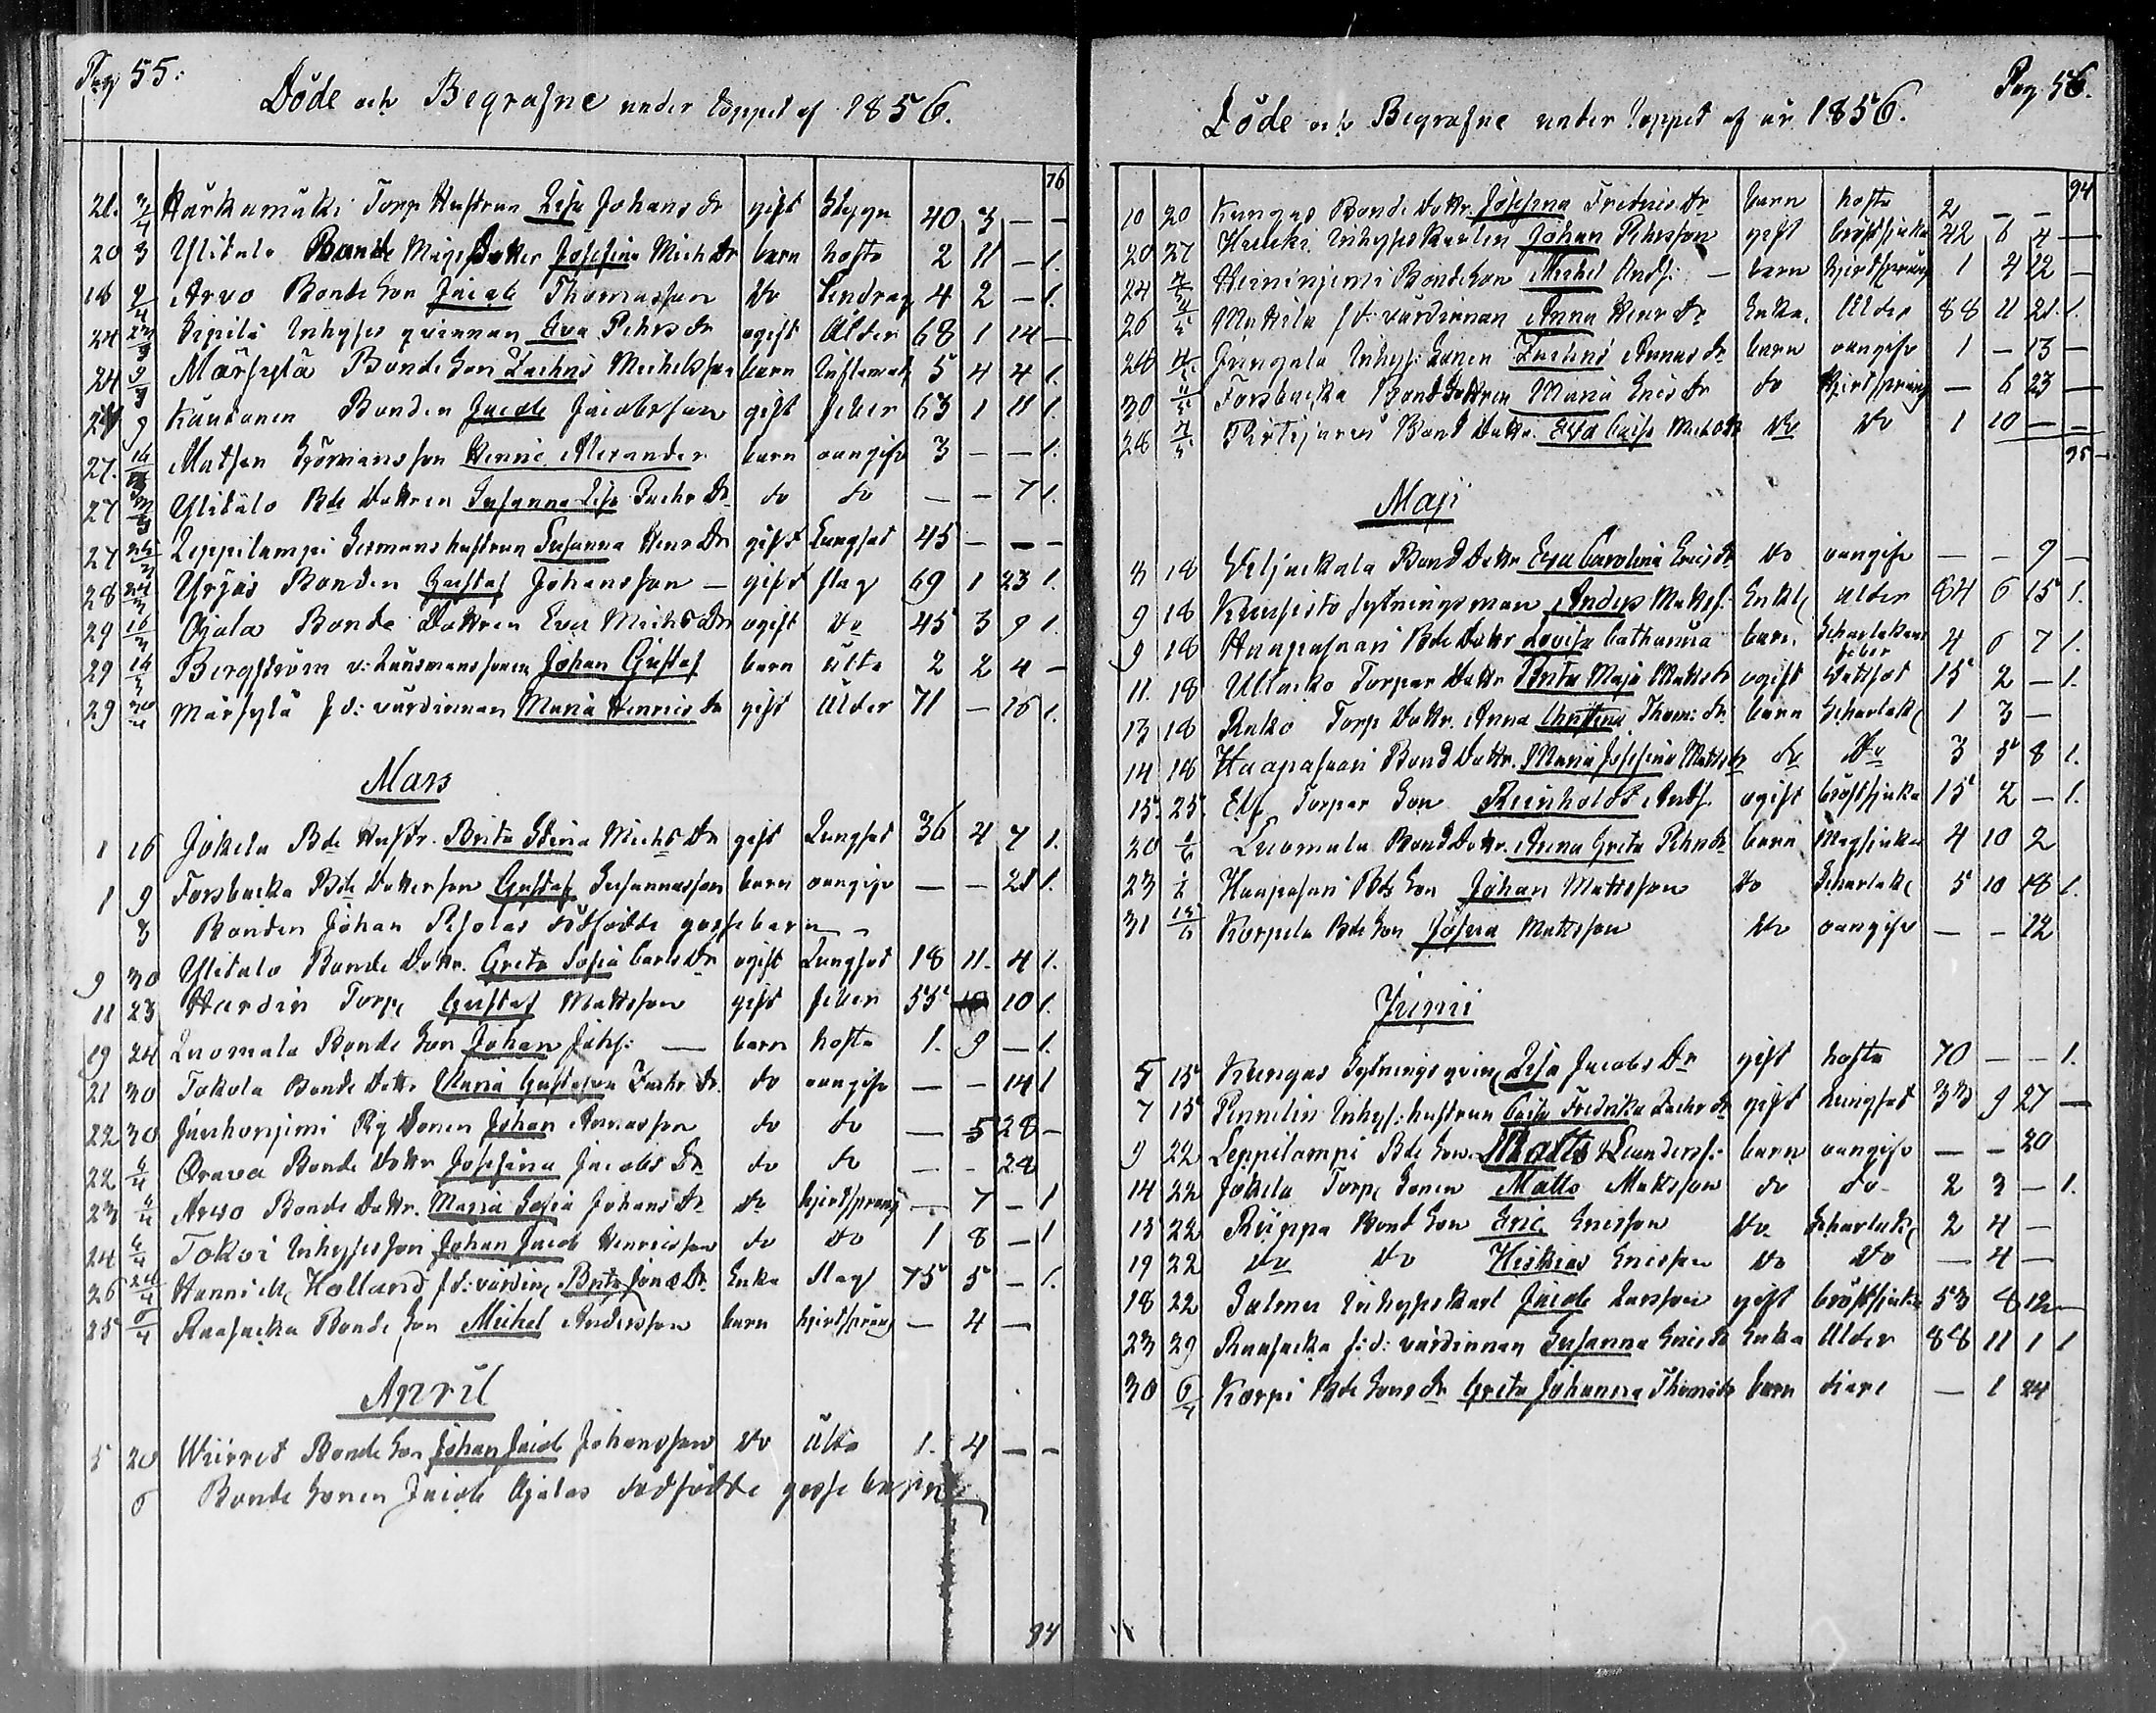 Pag 55:
Döde och Begrafne under loppet af 1856.
76
21. Härkamäki Torp Hustrun Lisa Johans dr gift Stygn 40 3 — —
20 3 Ylitalo Bonde Måges Dotter Josefina Mich Dr barn hosta 2 11 — 1.
18 Arvo Bonde Son Jacob Thomasson do 4 2 — 1.
24 Sipilä Inhyses qvinnan Eva Pehrs dr ogift Ålder 68 1 14 —
24 Märsylä Bonde Son Zachris Michelsson barn 5 4 4 1.
9 Kaustinen Bonden Jacob Jacobsson gift feber 63 1 11 1.
27. Matsen Henric Alexander barn oangifv 3 — — 1.
27 Ylitalo Bde Dottren Susanna Lisa Zachr Dr do do — — 7 1.
27 Leppilampi hustrun Susanna Henr Dr gift Lungsot 45 — — —
28 Yrjäs Bonden Gustaf Johansson — gift slag 69 1 23 1.
29 Ojala Bonde Dottren Eva Michs Dr ogift do 45 3 9 1.
29 Bergström v: Länsmanssonen Johan Gustaf barn älta 2 2 4 —
29 Märsylä f.d: värdinnan Maria Henrics dr gift Ålder 71 — 16 1.
Mars
1 16 Jokela Bde Hustr. Brita Stina Michs Dr gift Lungsot 36 4 7 1.
1 9 Forsbacka Bde Dotterson Gustaf Susannasson barn oangifv — — 21 1.
3 Bonden Johan Pesolas dödfödde gosse barn
9 30 Ylitalo Bonde Dottr. Greta Sofia Carls Dr ogift Lungsot 18 11. 4 1.
11 23 Hardin Torp. Gustaf Mattsson gift feber 55 10 1.
19 24 Luomala Bonde Son Johan Johs: — barn hosta 1. 9 — 1.
21 30 Tokola Bonde Dottr Maria Gustafva Zachr dr. do oangifv — — 14 1
22 30 Johan Annasson do do — 5 28 —
22 6/4 Orava Bonde Dottr Josefina Jacobs Dr do do — — 24
23 6/4 Arvo Bonde Dottr. Maria Sofia Johans Dr do hjertsprång — 7 — 1
24 6/4 Tokoi Inhysesson Johan Jacob Henricsson do do 1 8 — 1
26 Hannila Holland f.d: värdin, Brita Jonæ Dr. Enka slag 75 5 — 1.
25 6/4 Raasacka Bonde Son Michel Andersson barn hjertsprång — 4 —
April
5 20 Wiirret Bonde Son Johan Jacob Johansson do älta 1. 4 — —
6 Bonde Sonen Jacob Ojalas dödfödde gosse barn
94
Pag. 56.
Döde och Begrafne under loppet af år 1856.
94
10 20 Kungas Bonde Dottr. Josefina Fredrics dr barn hosta 2 — —
20 27 Huuki Inhyses Karlen Johan Pehrsson gift bröstsjuka 42 6 4 —
24 Heininiemi Bonde Son Michel Ands: — barn hjertsprång 1 4 22 —
26 Mattila f.d: värdinnan Anna Henr dr Enka. Ålder 88 11 21. 1.
28 Jungala Inhys: Sonen Zachris barn oangifv 1 — 13 —
30 Forsbacka Bond Dottren Maria Erics dr do hjertsprång — 6 23 —
28 Bond Dottr. Eva Caisa Michs dr do do 1 10 — —
95
Maji
3 18 Wiljackala Bond Dottr Eva Carolina Erics dr do oangifv — — 9 —
9 18 Kunsisto sytningsman Anders Matts: Enkl: ålder 84 6 15 1.
9 18 Haapasaari Bde Dottr Lovisa Catharina barn Scharlakans feber 4 6 7 1.
11. 18 Ullacko Torpar Dottr Brita Maja Matts dr ogift Wattsot 15 2 — 1.
13 18 Rukko Torp Dottr. Anna Christina Thom: dr barn Scharlak: 1 3 —
14 18 Haapasaari Bond Dottr. Maria Josefina Matts dr do do 3 5 8 1.
15. 25. Elf Torpar Son Reinholdt Ands. ogift bröstsjuka 15 2 — 1.
20 1/6 Luomala Bond Dottr. Anna Greta Pehrs dr barn Magsjuka 4 10 2
23 1/6 Haapasaari Bde Son Johan Mattsson do Scharlak: 5 10 18 1.
31 Korpela Bde Son Josua Mattsson do oangifv — — 22
Junii
5 15 Kungas Sytnings qvin: Lisa Jacobs Dr gift hosta 70 — — 1.
7 15 Pennelin Inhys: hustrun Caisa Fredrika Zachr dr gift Lungsot 33 9 27 —
9 22 Leppilampi Bde Son Matts Leanders: barn oangifv — — 20
14 22 Jokela Torp. Sonen Matts Mattsson do do 2 3 — 1.
15 22 Riippa Bond Son Eric Ericsson do Scharlak: 2 4 —
19 22 do do Hiskias Ericsson do do — 4 —
18 22 Salmu Inhyses Karl Jacob Larsson gift bröstsjuka 53 8 12 —
23 29 Raasacka f.d: värdinnan Susanna Erics dr Enka Ålder 88 11 1 1
30 6/7 Korpi Bde Sons dr Greta Johanna Thoms dr barn diare — 1 24